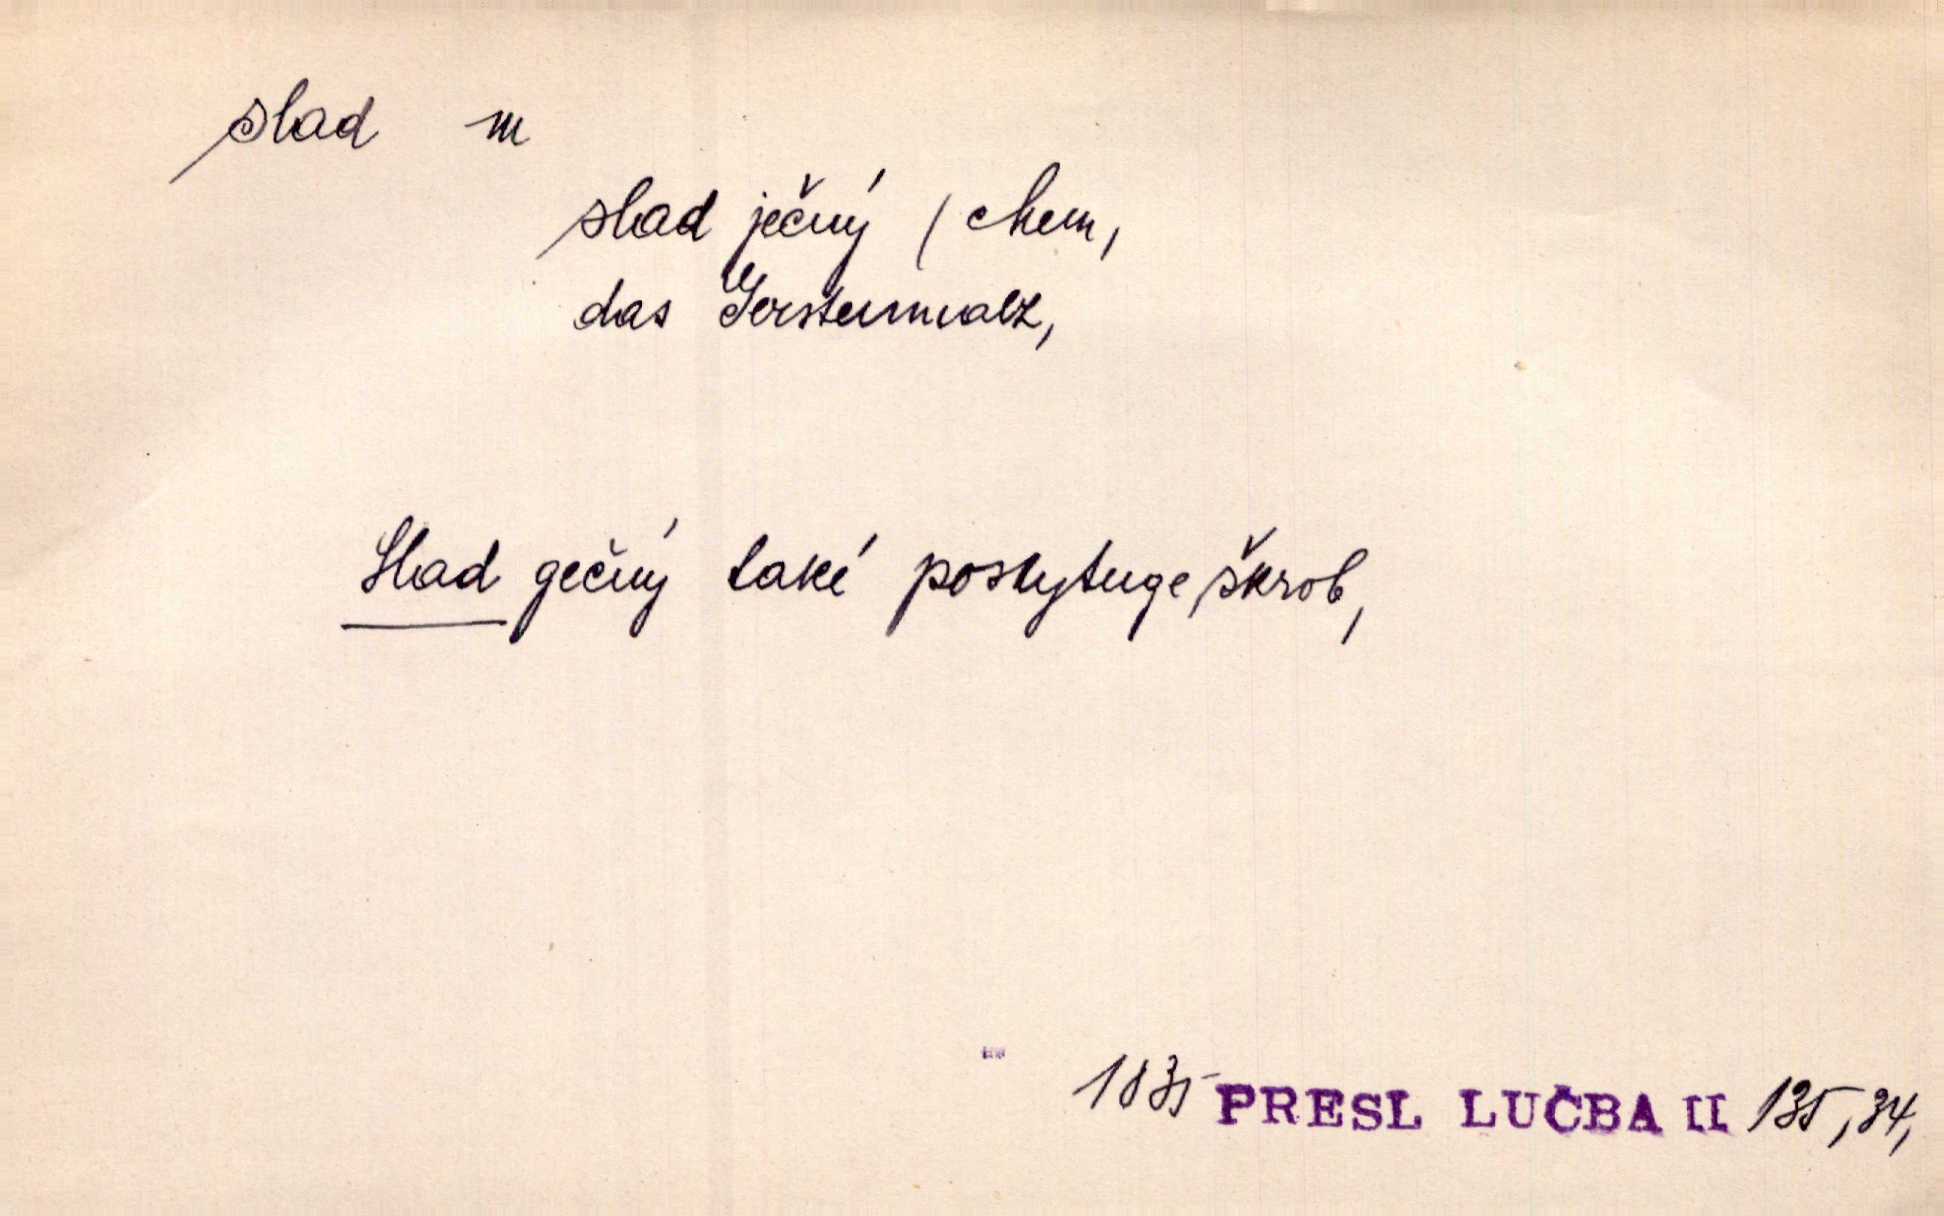 slad m
slad ječný / chem,
das Gerstenmalz,
Slad gečný také poskytuge škrob,
1835 PRESL LUČBA II 135, 34,